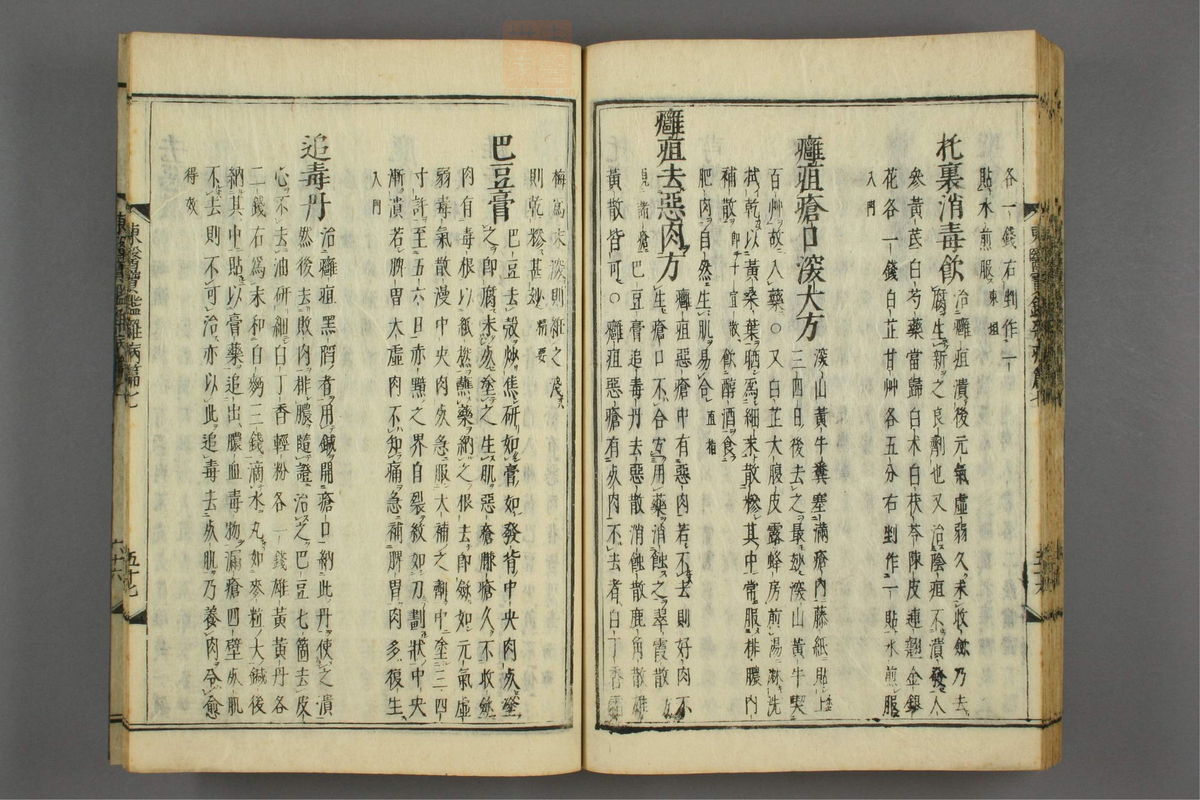 各一錢右剉作一
貼水煎服 東垣
托裏消毒飮 治癰疽潰後元氣虛弱久未收斂乃去
腐生新之良劑也又治陰疽不潰發人
參黃芪白芍藥當歸白朮白茯苓陳皮連翹金銀
花各一錢白芷甘艸各五分右剉作一貼水煎服
入門
癰疽瘡口深大方 深山黃牛糞塞滿瘡內藤紙貼上
三四日後去之最玅深山黃牛喫
百艸故入藥〇又白芷大腹皮露蜂房煎湯淋洗
拭乾以黃桑葉晒爲細末散糝其中常服排膿內
補散 卽十宣散 飮醇酒食
肥肉自然生肌易合 直指
癰疽去惡肉方 癰疽惡瘡中有惡肉若不去則好肉不
生瘡口不合宜用藥消蝕之翠霞散 方
見諸瘡 巴豆膏追毒丹去惡散消蝕散鹿角散雄
黃散皆可〇癰疽惡瘡有灰肉不去者白丁香
梅爲末深則維之
則乾糝甚玅 精要
巴豆膏 巴豆去殼炒焦硏如膏如發背中央肉灰塗
之卽腐未灰塗之生肌惡瘡臁瘡久不收斂
肉有毒根以紙撚蘸藥納之根去卽斂如元氣虛
弱毒氣散漫中央肉灰急服大補之劑中塗三四
寸許至五六日赤黯之界自裂紋如刀劃狀中央
漸潰若脾胃大虛肉不知痛急補脾胃肉多復生
入門
追毒丹 治癰疽黑䧟者用鍼開瘡口納此丹使之潰
然後去敗肉排膿隨證治之巴豆七箇去皮
心不去油硏細白丁香輕粉各一錢雄黃黃丹各
二錢右爲末和白麪三錢滴水丸如麥粒大鍼後
納其中貼以膏藥追出膿血毒物漏瘡四壁灰肌
不去則不可治亦以此追毒去灰肌乃養肉令愈
得效
東醫寶鑑雜病篇七
五十七